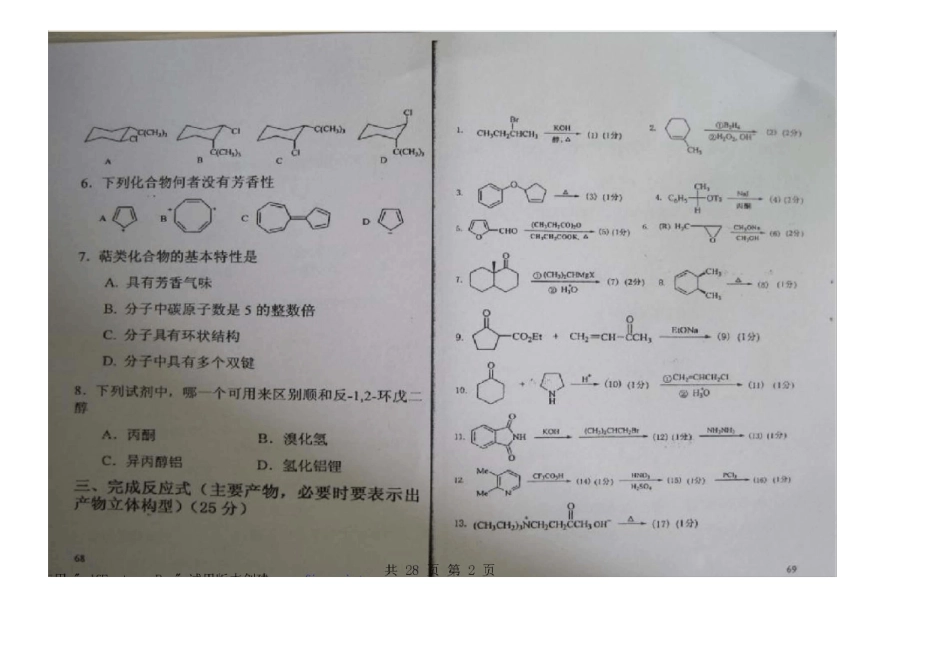 Cl
C(CH₃)₃
Cl
C(CH₃)₃
C(CH₃)₃
Cl
Cl
C(CH₃)₃
A
B
C
D
6. 下列化合物何者没有芳香性
A
B
C
D
7. 萜类化合物的基本特性是
A. 具有芳香气味
B. 分子中碳原子数是 5 的整数倍
C. 分子具有环状结构
D. 分子中具有多个双键
8. 下列试剂中，哪一个可用来区别顺和反-1,2-环戊二
醇
A. 丙酮
B. 溴化氢
C. 异丙醇铝
D. 氢化铝锂
三、完成反应式（主要产物，必要时要表示出
产物立体构型）(25 分)
68
1. CH₃CH₂CHCH₃ Br KOH 醇, △ (1) (1分)
2. CH₃ ①B₂H₆ ②H₂O₂, OH⁻ (2) (2分)
3. O △ (3) (1分)
4. C₆H₅ CH₃ H OTs NaI 丙酮 (4) (2分)
5. O CHO (CH₃CH₂CO)₂O CH₃CH₂COOK, △ (5) (1分)
6. (R) H₃C O CH₃ONa CH₃OH (6) (2分)
7. O ①(CH₃)₂CHMgX ② H₃O (7) (2分)
8. CH₃ CH₃ △ (8) (1分)
9. O CO₂Et + CH₂=CH-CCH₃ O EtONa (9) (1分)
10. O + N H H⁺ (10) (1分) ①CH₂=CHCH₂Cl ② H₃O (11) (1分)
11. O NH O KOH (CH₃)₂CHCH₂Br (12) (1分) NH₂NH₂ (13) (1分)
12. Me Me N CF₃CO₃H (14) (1分) HNO₃ H₂SO₄ (15) (1分) PCl₃ (16) (1分)
13. (CH₃CH₂)₃NCH₂CH₂CCH₃OH⁻ O △ (17) (1分)
69
共 28 页 第 2 页